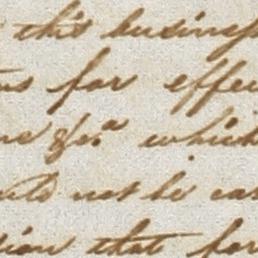 this business
for effec
&c.a which
ould not be eas
tion that for